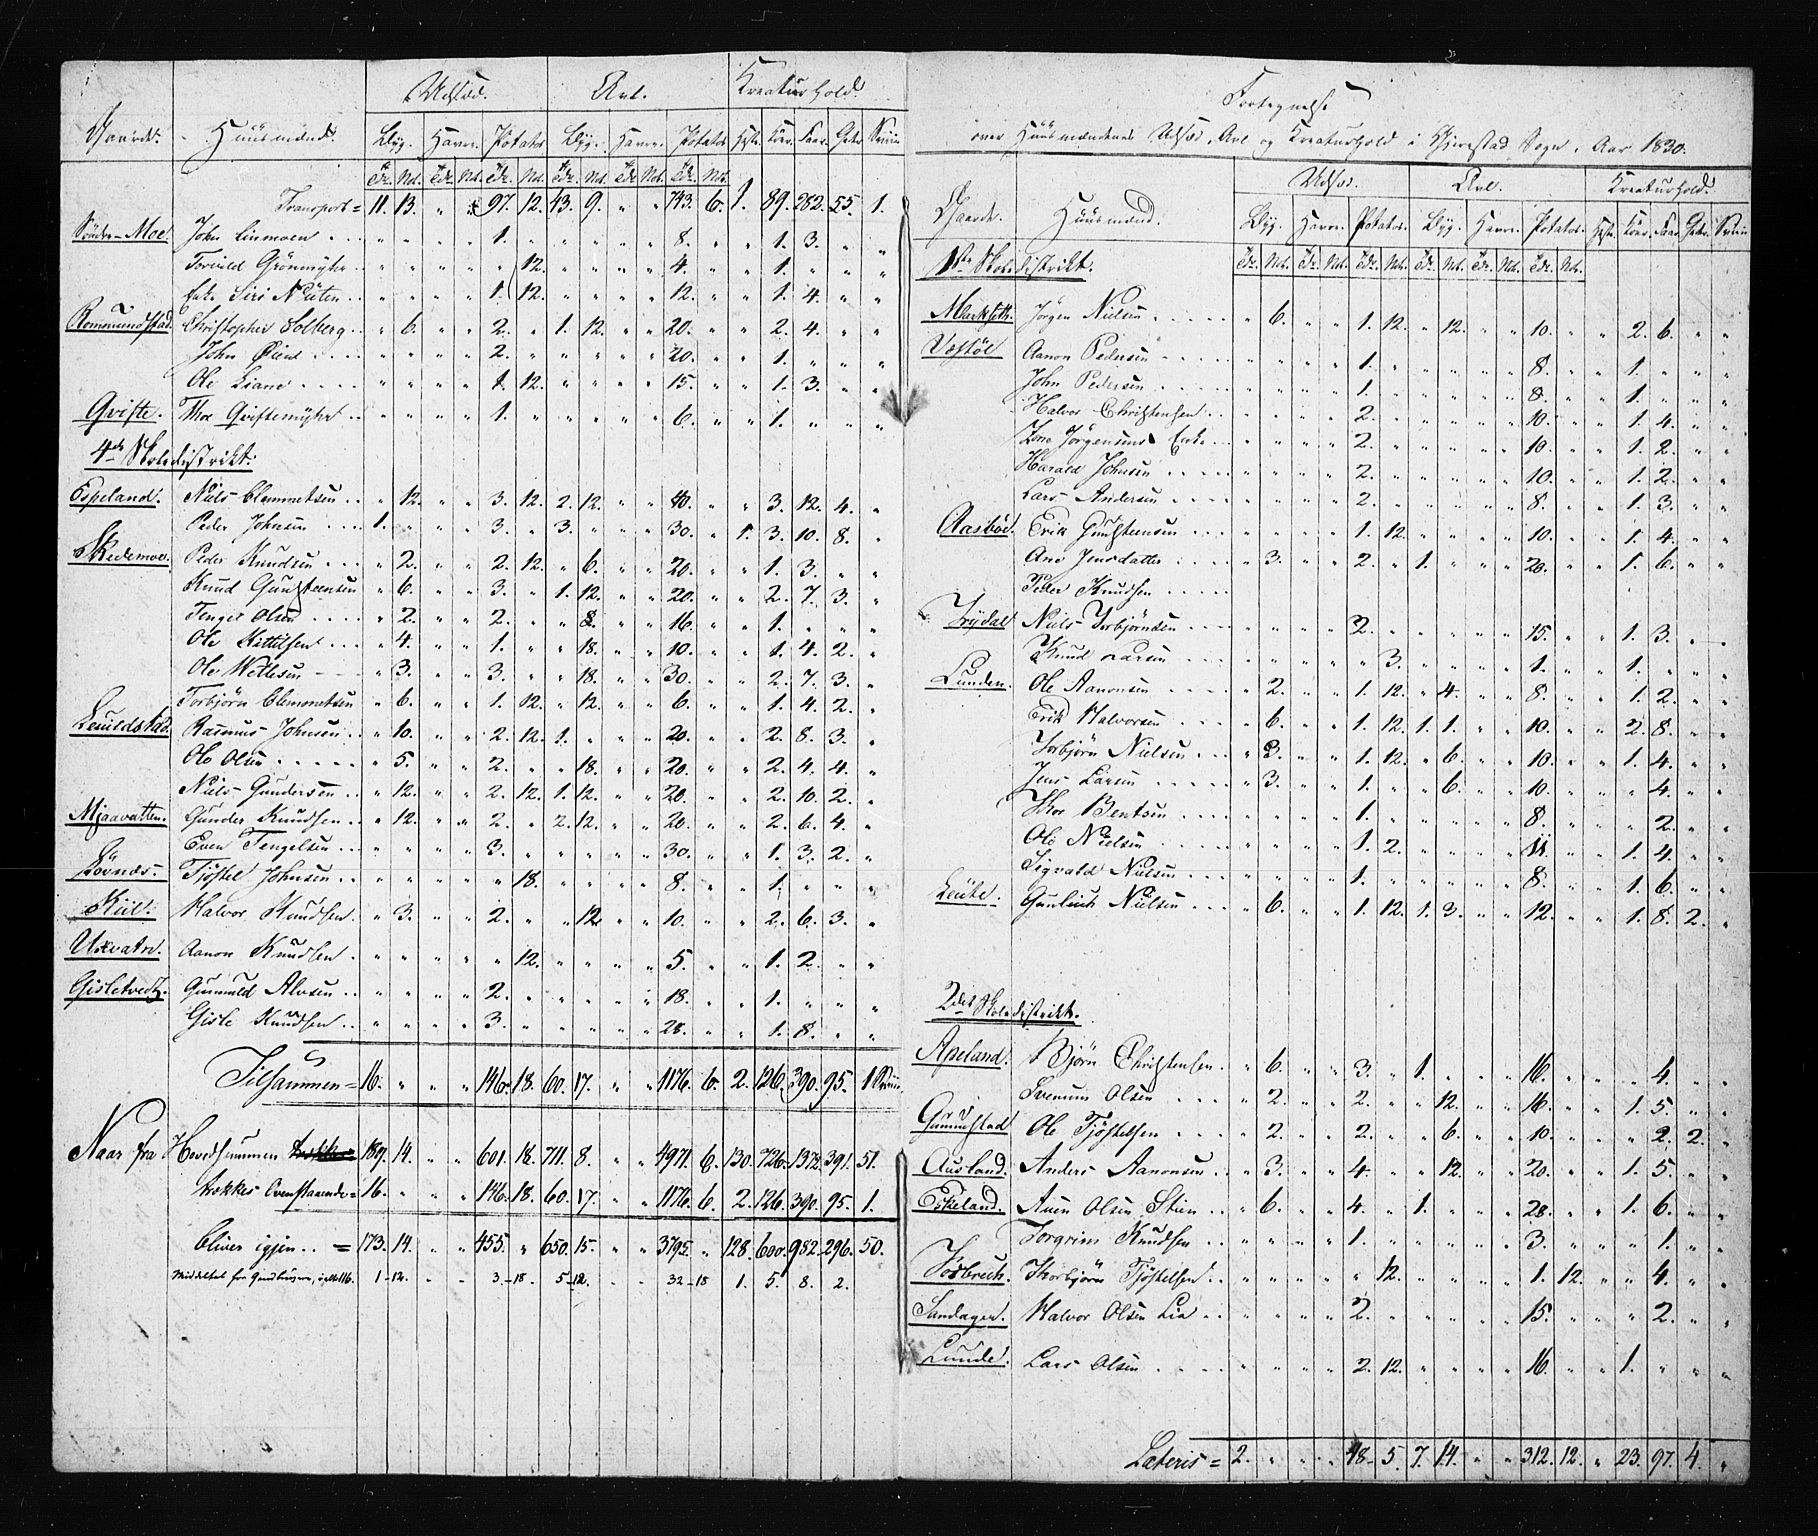 Udsæd. Avl. Kreaturhold.
Gaarde. Huusmænd. Byg. Havre. Potatos Byg. Havre. Potatos Heste. Kiør. Faar. Geder. Sviin
Tdr. Nd. Tdr. Nd. Tdr. Nd. Tdr. Nd. Tdr. Nd. Tdr. Nd.
Transport = 11. 13. " " 97. 12. 43. 9. " " 743. 6. 1. 89. 282. 55. 1.
Søndre-Moe. John Linmoen . . " " " " 1. " " " " " 8. " " 1. 3. " "
Torvild Grönmyhr . . " " " " " 12. " " " " 4. " " 1. " " "
Enke Siri " " " " 1. 12. " " " " 12. " " 1. 4. " "
Rommundstad. Christopher Solberg . . " 6. " " 2. " 1. 12. " " 20. " " 2. 4. " "
John " " " " 2. " " " " " 20. " " 1. " " "
Ole Liane . . . . " " " " 1. 12. " " " " 15. " " 1. 3. " "
Qvifte. Thor Qviftemyhr . . " " " " 1. " " " " " 6. " " 1. " " "
4de Skoledistrikt:
Espeland. Niels Clemmetsen . . " 12. " " 3. 12. 2. 12. " " 40. " " 3. 12. 4. "
Peder Johnsen . . . 1. " " " 3. " 3. " " " 30. " 1. 3. 10. 8. "
Skedemoe. Peder Knudsen . . " 2. " " 2. 12. " 6. " " 20. " " 1. 3. " "
Knud Gundsteensen " 6. " " 3. " 1. 12. " " 20. " " 2. 7. 3. "
Tengel Olsen . . . . " 2. " " 2. " " 8. " " 16. " " 1. " " "
Ole Kittilsen . . . " 4. " " 1. " " 18. " " 10. " " 1. 4. 2. "
Ole Wetlesen " 3. " " 3. " " 18. " " 30. " " 2. 7. 3. "
Torbjörn Clemmetsen " 6. " " 1. 12. " 12. " " 6. " " 1. 4. 2. "
Rasmus Johnsen . . " 10. " " 2. 12. 1. " " " 20. " " 2. 8. 3. "
Ole Olsen . . . . . " 5. " " 2. " " 18. " " 20. " " 2. 4. 4. "
Niels Gundersen . . " 12. " " 2. 12. 1. 12. " " 20. " " 2. 10. 2. "
Mjaavatten. Gunder Knudsen . . " 12. " " 2. " 2. 12. " " 20. " " 2. 6. 4. "
Even Tengelsen . . " " " " 3. " " " " " 30. " " 1. 3. 2. "
Lövnæs. Tjöstel Johnsen . . " " " " " 18. " " " " 8. " " 1. " " "
Kiil. Halvor Knudsen. " 3. " " 2. " " 12. " " 10. " " 2. 6. 3. "
Uxvatn. Aanon Knudsen . " " " " " 12. " " " " 5. " " 1. 2. " "
Gisletvedt. Gunnuld Alvsen . . " " " " 2. " " " " " 18. " " 1. " " "
Gisle Knudsen . . " " " " 3. " " " " " 28. " " 1. 8. " "
Tilsammen = 16. " " " 146. 18. 60. 17. " " 1176. 6. 2. 126. 390. 95. 1 Sviin
Naar fra Hovedsummen 189. 14. " " 601. 18. 711. 8. " " 4971. 6. 130. 726. 1372. 391. 51.
trækkes Ovenstaaende = 16. " " " 146. 18. 60. 17. " " 1176. 6. 2. 126. 390. 95. 1.
bliver igjen . . = 173. 14. " " 455. " 650. 15. " " 3795. " 128. 600. 982. 296. 50.
Middeltal for 1-12. " " 3.-18 5-12. " " 32-18 1. 5. 8. 2.
Fortegnelse
over Huusmændenes Udsæd, Avl og Kreaturhold i Gjerrestad Sogn, Aar 1830.
Udsæd. Avl. Kreaturhold.
Gaarde. Huusmænd. Byg. Havre. Potatos. Byg. Havre. Potatos. Heste. Kiør. Faar. Geder. Sviin
Tdr. Nd. Tdr. Nd. Tdr. Nd. Tdr. Nd. Tdr. Nd. Tdr. Nd.
1ste Skoledistrikt.
Jörgen Nielsen . . . . . " 6. " " 1. 12. " 12. " " 10. " " 2. 6. " "
Vestöl Aanon Pedersen . . . . " " " " 1. " " " " " 8. " " 1. " " "
John Pedersen . . . . " " " " 1. " " " " " 8. " " 1. " " "
Halvor Christensen . . " " " " 2. " " " " " 10. " " 1. 4. " "
Jörgensens Enke . . " " " " 2. " " " " " 10. " " 1. 2. " "
Harald Johnsen . . . . " " " " 2. " " " " " 10. " " 1. 2. " "
Lars Andersen . . . . " " " " 2. " " " " " 8. " " 1. 3. " "
Aasböe. Erik Gundsteensen . . . " " " " 1. 12. " " " " 10. " " 1. 4. " "
Ane Jensdatter . . . . " 3. " " 2. " 1. " " " 20. " " 1. 6. " "
Peder Knudsen . . . . .
Trydal Niels Torbjörnsen . . . " " " " 2. " " " " " 15. " " 1. 3. " "
Knud Larsen . . . . " " " " " 3. " " " " 1. " " 1. " " "
Lunden. Ole Aanonsen . . . . " 2. " " 1. 12. " 4. " " 8. " " 1. 2. " "
Erik Halvorsen . . . . " 6. " " 1. 12. 1. 1. " " 10. " " 2. 8. " "
Torbjörn Nielsen . . . " 3. " " 1. 12. " 6. " " 10. " " 1. 4. " "
Jens Larsen . . . . . " 3. " " 1. " " 6. " " 10. " " " 4. " "
Thor Bentsen . . . . " " " " 1. " " " " " 8. " " " 2. " "
Ole Nielsen . . . . . " " " " 1. 2. " " " " 11. " " 1. 4. " "
Sigvald Nielsen . . . . " " " " 1. " " " " " 8. " " 1. 6. " "
Leite. Gunleik Nielsen . . . " 6. " " 1. 12. 1. 3. " " 12. " " 1. 8. 2. "
2det Skoledistrikt.
Apeland. Björn Christensen . " 6. " " 3. " 1. " " " 16. " " " 4. " "
Svenum Olsen . . . . " 2. " " 2. " " 12. " " 16. " " 1. 5. " "
Grummestad Ole Tjöstelsen . . . . " 2. " " 2. " " 6. " " 10. " " " 2. 2. "
Ausland. Anders Aanonsen . . " 3. " " 4. " " 12. " " 20. " " 1. 5. " "
Eskeland. Aven Olsen Stien . . " 6. " " 4. " 1. " " " 28. " " 1. 6. " "
Torgrim Knudsen " " " " 1. " " " " " 3. " " " 1. " "
Thorbjörn Tjöstelsen . . " " " " " 12. " " " " 1. 12. " " 4. " "
Sandager. Halvor Olsen Lia . . " " " " 2. " " " " " 15. " " " 2. " "
Lunde. Lars Olsen . . . . . " " " " 2. 12. " " " " 16. " " 1. " " "
Lateris = 2. " " " 48. 5. 7. 14. " " 312. 12. " 23. 97. 4. "